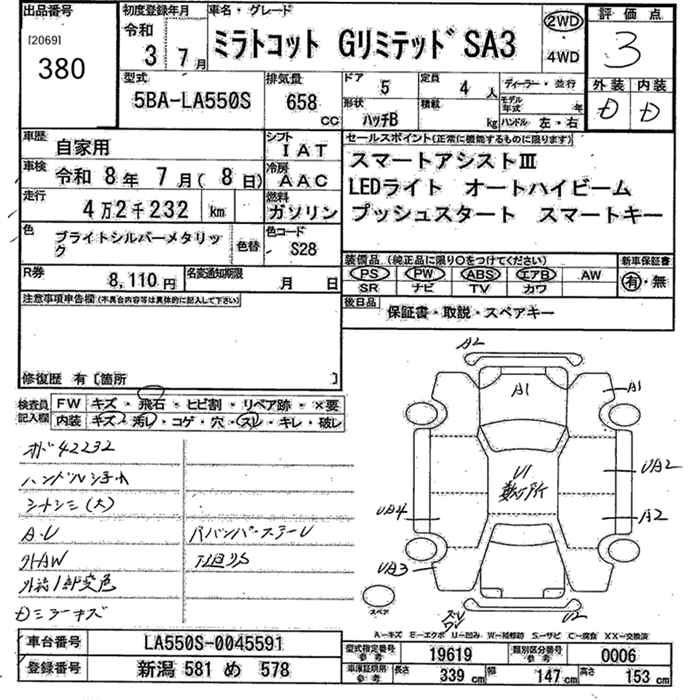 出品番号
[2069]
380
初度登録年月
令和
3年 7月
車名・グレード
ミラトコット Gリミテッド SA3
2WD
4WD
評価点
3
外装 内装
D D
型式
5BA-LA550S
排気量
658 CC
ドア 5
形状 ハッチB
定員 4 人
積載 kg
ディーラー・並行
モデル年式 年
ハンドル 左・右
車歴 自家用
シフト IAT
車検 令和 8年 7月( 8日)
冷房 AAC
走行 4万2千232 km
燃料 ガソリン
色 ブライトシルバーメタリック
色替
色コード S28
R券 8,110円
名変通知期限 月 日
セールスポイント(正常に機能するものに限ります)
スマートアシストⅢ
LEDライト オートハイビーム
プッシュスタート スマートキー
装備品(純正品に限り○をつけてください)
新車保証書
PS PW ABS エアB AW
SR ナビ TV カワ
有・無
後日品 保証書・取説・スペアキー
注意事項申告欄(不具合内容等は具体的に記入して下さい)
修復歴 有〔箇所 〕
検査員記入欄
FW キズ・飛石・ヒビ割・リペア跡・×要
内装 キズ・汚レ・コゲ・穴・スレ・キレ・破レ
42232
シートシミ(大)
A・U
外AW
Dミラーキズ
A2
A1
A1
U1
数ヶ所
UA2
A2
UA4
UA3
U2
スペア
A-キズ E-エクボ U-凹み W-補修跡 S-サビ C-腐食 XX-交換済
車台番号 LA550S-0045591
登録番号 新潟 581 め 578
型式指定番号 参考 19619
類別区分番号 参考 0006
車庫証明用 参考 長さ 339 cm 幅 147 cm 高さ 153 cm